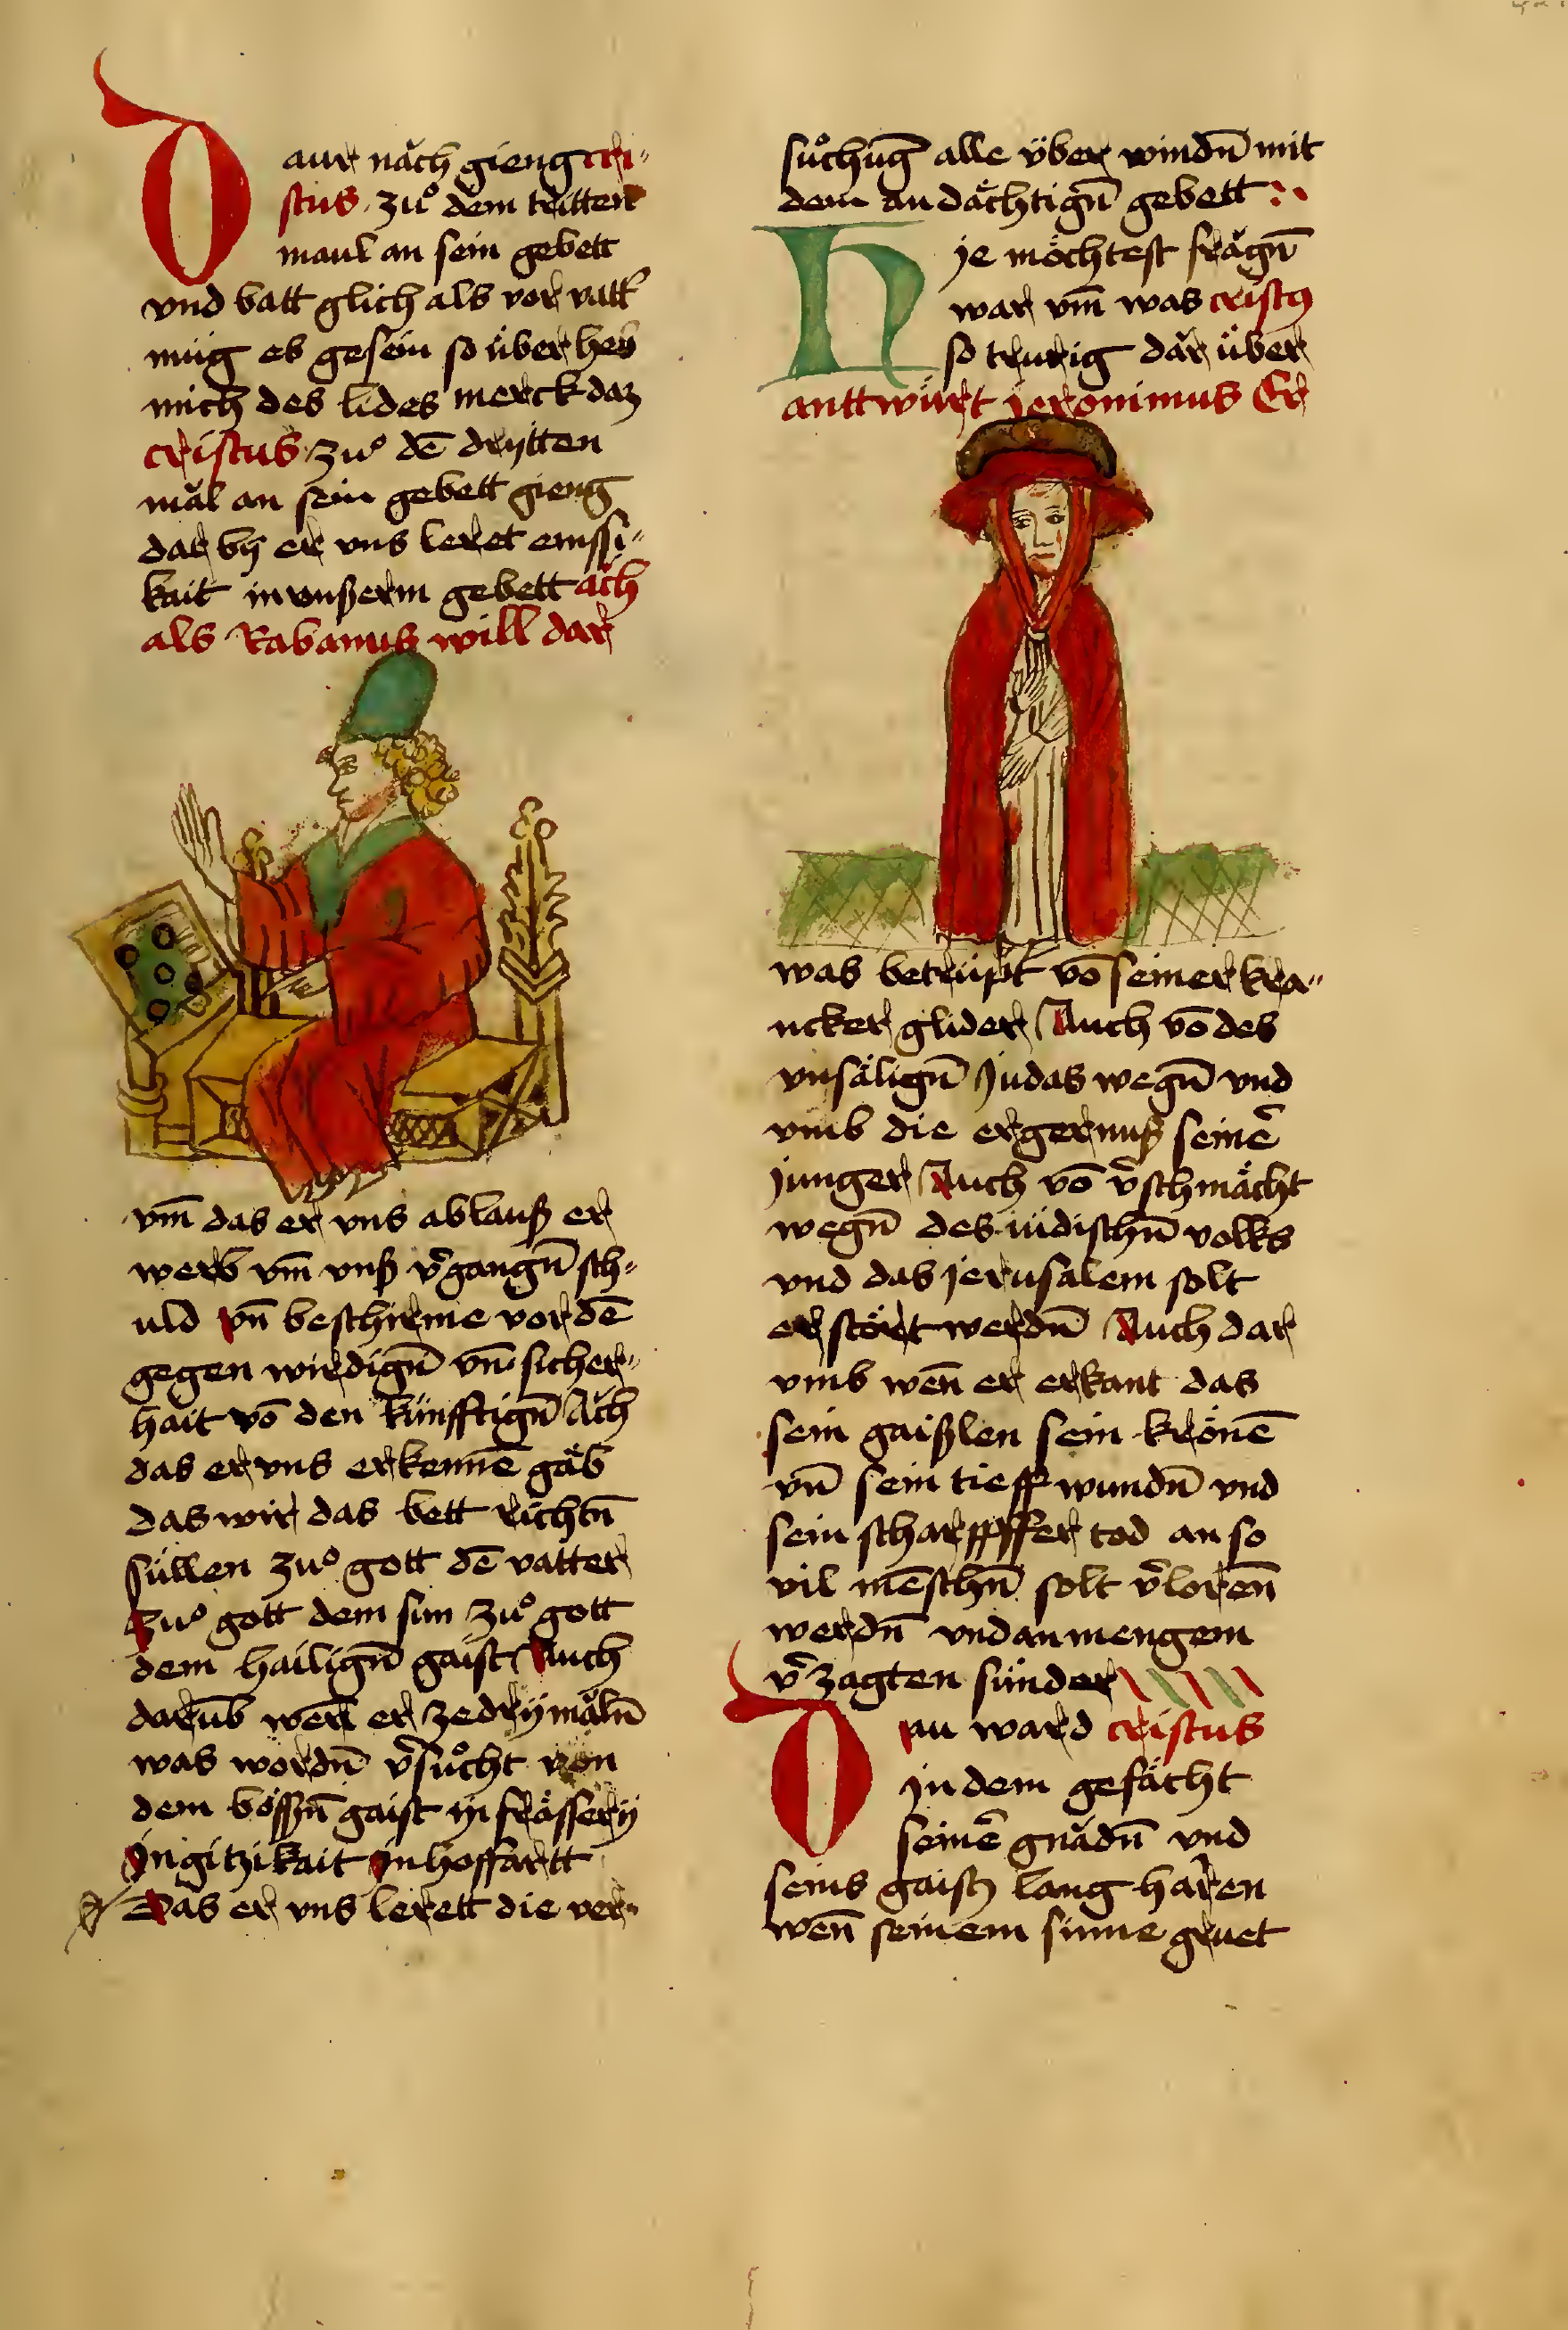 Daur nǎch gieng cri-
stus zů dem tritten
maul an sein gebett
vnd batt glich als vor vatt̄
müg es gesein so über heb
mich des lides merck daz
cristus zů dē drÿtten
mǎl an sein gebett gieng
dar bÿ er vns leret emssi-
kait in vnßerm gebett ǎch
als Rabanus will dar
vm̄ das er vns ablauß er
werb vm̄ vnß v̄gangn̄ sch-
uld vn̄ beschirme vor dē
gegen wirdign̄ vn̄ sicher-
hait vō den künfftign̄ Ǎch
das er vns erkennē gäb
das wir das bett richtn̄
süllen zů gott dē vatter
zů gott dem sun zů gott
dem hailign̄ gaist Auch
darūb wen̄ er ze drÿ mǎln̄
was wordn̄ v̄sůcht von
dem bößn̄ gaist in frässerÿ
In gitzikait In hoffartt
Das er vns lerett die ver-
sůchūg alle über windn̄ mit
dem andächtign̄ gebett
Hje möchtest frǎgn̄
war vm̄ was cristꝯ
so trurig dǎr über
anttwürt jeronimus Er
was betrüpt vō seiner kra-
ncker glider Auch vō des
vnsälign̄ Judas wegn̄ vnd
vmb die ergernuß seinē
junger Auch vō v̄schmächt
wegn̄ des iüdischn̄ volks
vnd das jerusalem solt
er stört werdn̄ Auch dar
vmb wen̄ er erkant das
sein gaißlen sein krönē
vn̄ sein tieff wundn̄ vnd
sein scharpffer tod an so
vil mēschn̄ solt v̄loren̄
werdn̄ vnd an mengem
v̄zagten sünder
Do nu ward cristus
in dem gefächt
seinē gnǎdn̄ vnd
seins gaistꝫ lang harren
wen̄ seinem sinne gruet